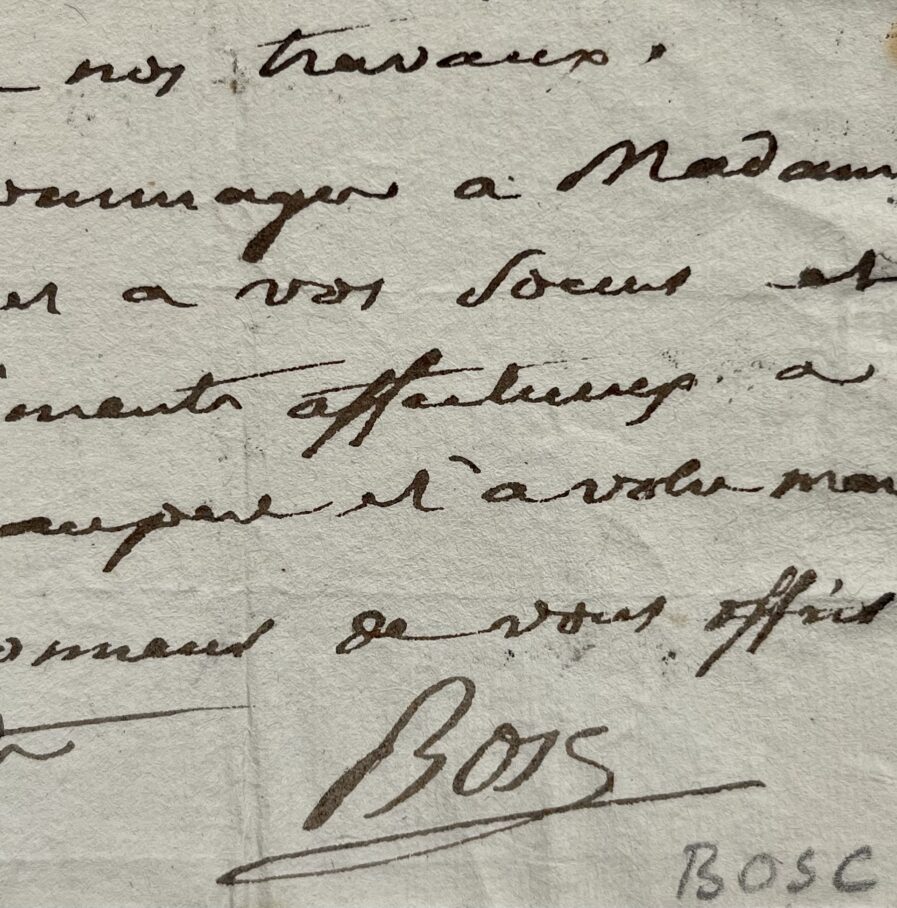 nos travaux.
hommages a Madam
et a vos soeurs et
iments affectueux a
et à votre
onneur de vous offrir
Bosc
BOSC